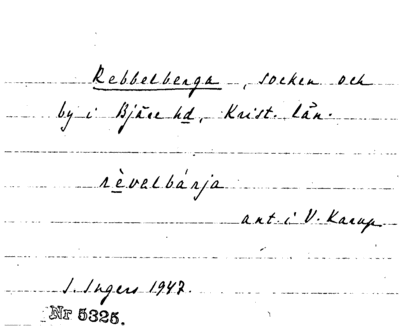 Rebbelberga, socken och
by i Bjäre hd, Krist. län.
rèvelbárja
ant. i V. Karup.
I. Ingers 1947.
Nr 5325.